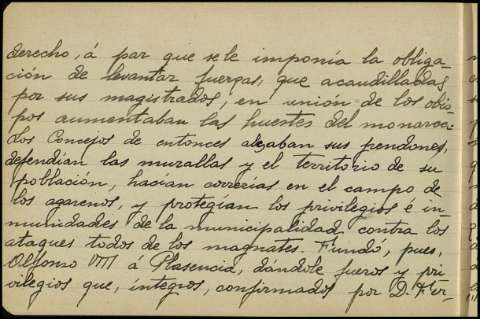 derecho, á par que se le imponía la obliga-
ción de levantar fuerzas, que acaudilladas
por sus magistrados, en unión de los obis-
pos aumentaban las huestes del monarca.
Los Concejos de entonces alzaban sus pendones,
defendían las murallas y el territorio de su
población, hacían correrías en el campo de
los agarenos, y protegían los privilegios é in-
munidades de la municipalidad contra los
ataques todos de los magnates. Fundó, pues,
Alfonso VIII á Plasencia, dándole fueros y pri
vilegios que, íntegros, confirmados por D. Fer-